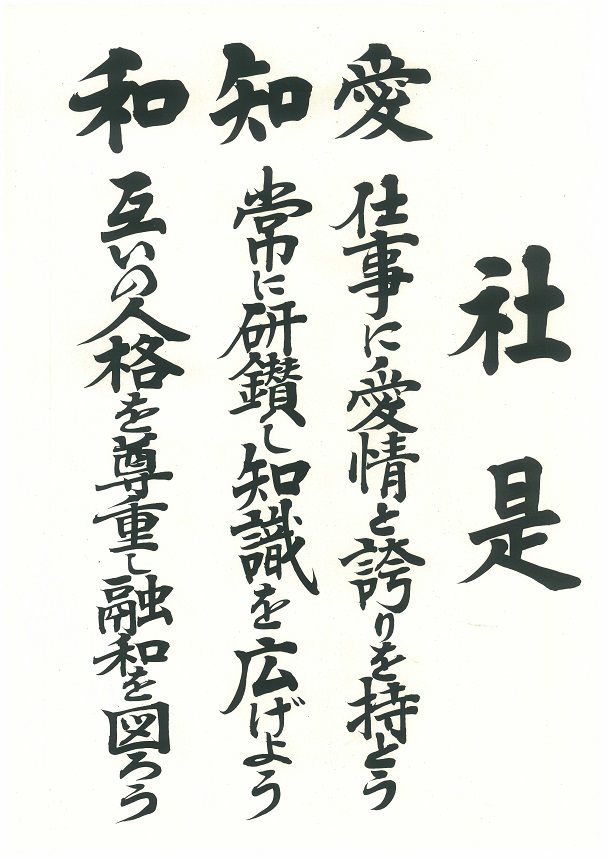 社是
愛 仕事に愛情と誇りを持とう
知 常に研鑽し知識を広げよう
和 互いの人格を尊重し融和を図ろう